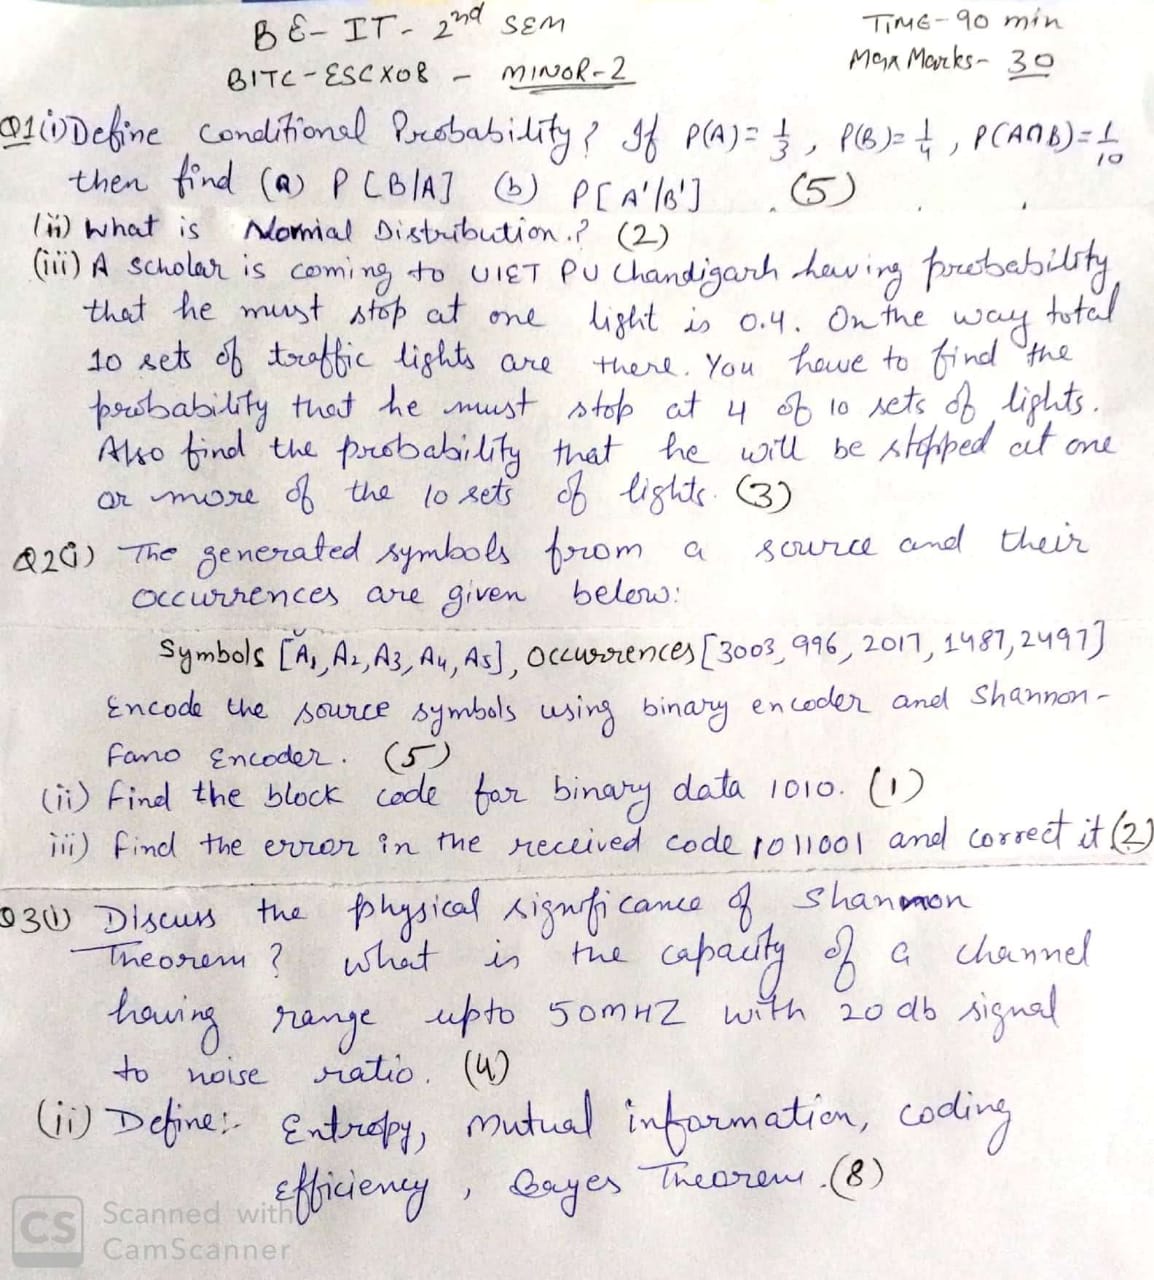 BE- IT- 2nd SEM
TIME-90 min
BITC-ESCX08 - MINOR-2
Max Marks- 30
Q1(i)Define Conditional Probability? If P(A)=1/3, P(B)=1/4, P(A∩B)=1/10
then find (a) P[B/A] (b) P[A'/B'] (5)
(ii) What is Normial Distribution.? (2)
(iii) A Scholar is coming to UIET PU Chandigarh having probability
that he must stop at one light is 0.4. On the way total
10 sets of traffic lights are there. You have to find the
probability that he must stop at 4 of 10 sets of lights.
Also find the probability that he will be stopped at one
or more of the 10 sets of lights. (3)
Q2(i) The generated symbols from a source and their
occurrences are given below:
Symbols [A1, A2, A3, A4, A5], occurrences [3003, 996, 2017, 1487, 2497]
Encode the source symbols using binary encoder and Shannon-
fano Encoder. (5)
(ii) find the block code for binary data 1010. (1)
iii) find the error in the received code 1011001 and correct it (2)
Q3(i) Discuss the physical significance of Shannon
Theorem? what is the capacity of a channel
having range upto 50MHZ with 20 db signal
to noise ratio. (4)
(ii) Define:- Entropy, mutual information, coding
efficiency, Bayes Theorem. (8)
CS Scanned with
CamScanner